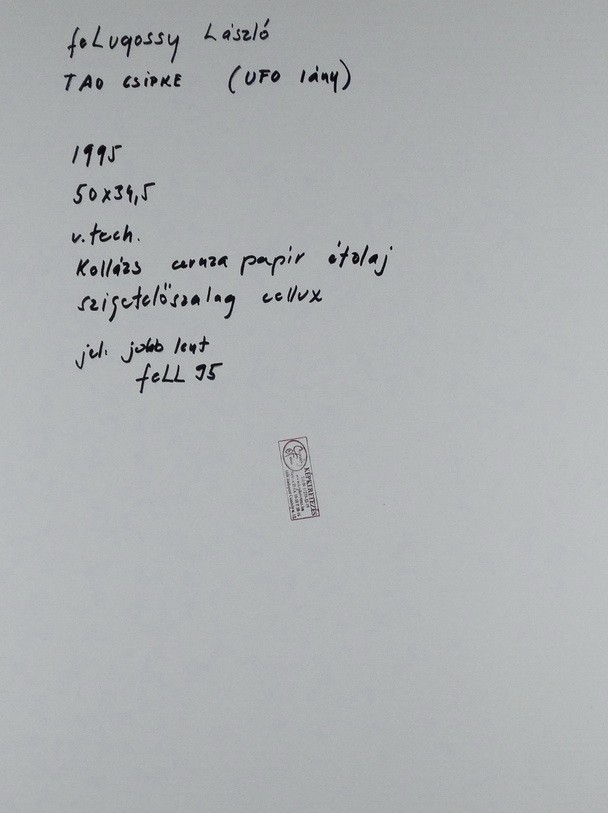 feLugossy László
TAO CSIPKE (UFO lány)
1995
50x34,5
v.tech.
Kollázs ceruza papír étolaj
szigetelőszalag cellux
jel: jobb lent
feLL 95
KÉPKERETEZÉS